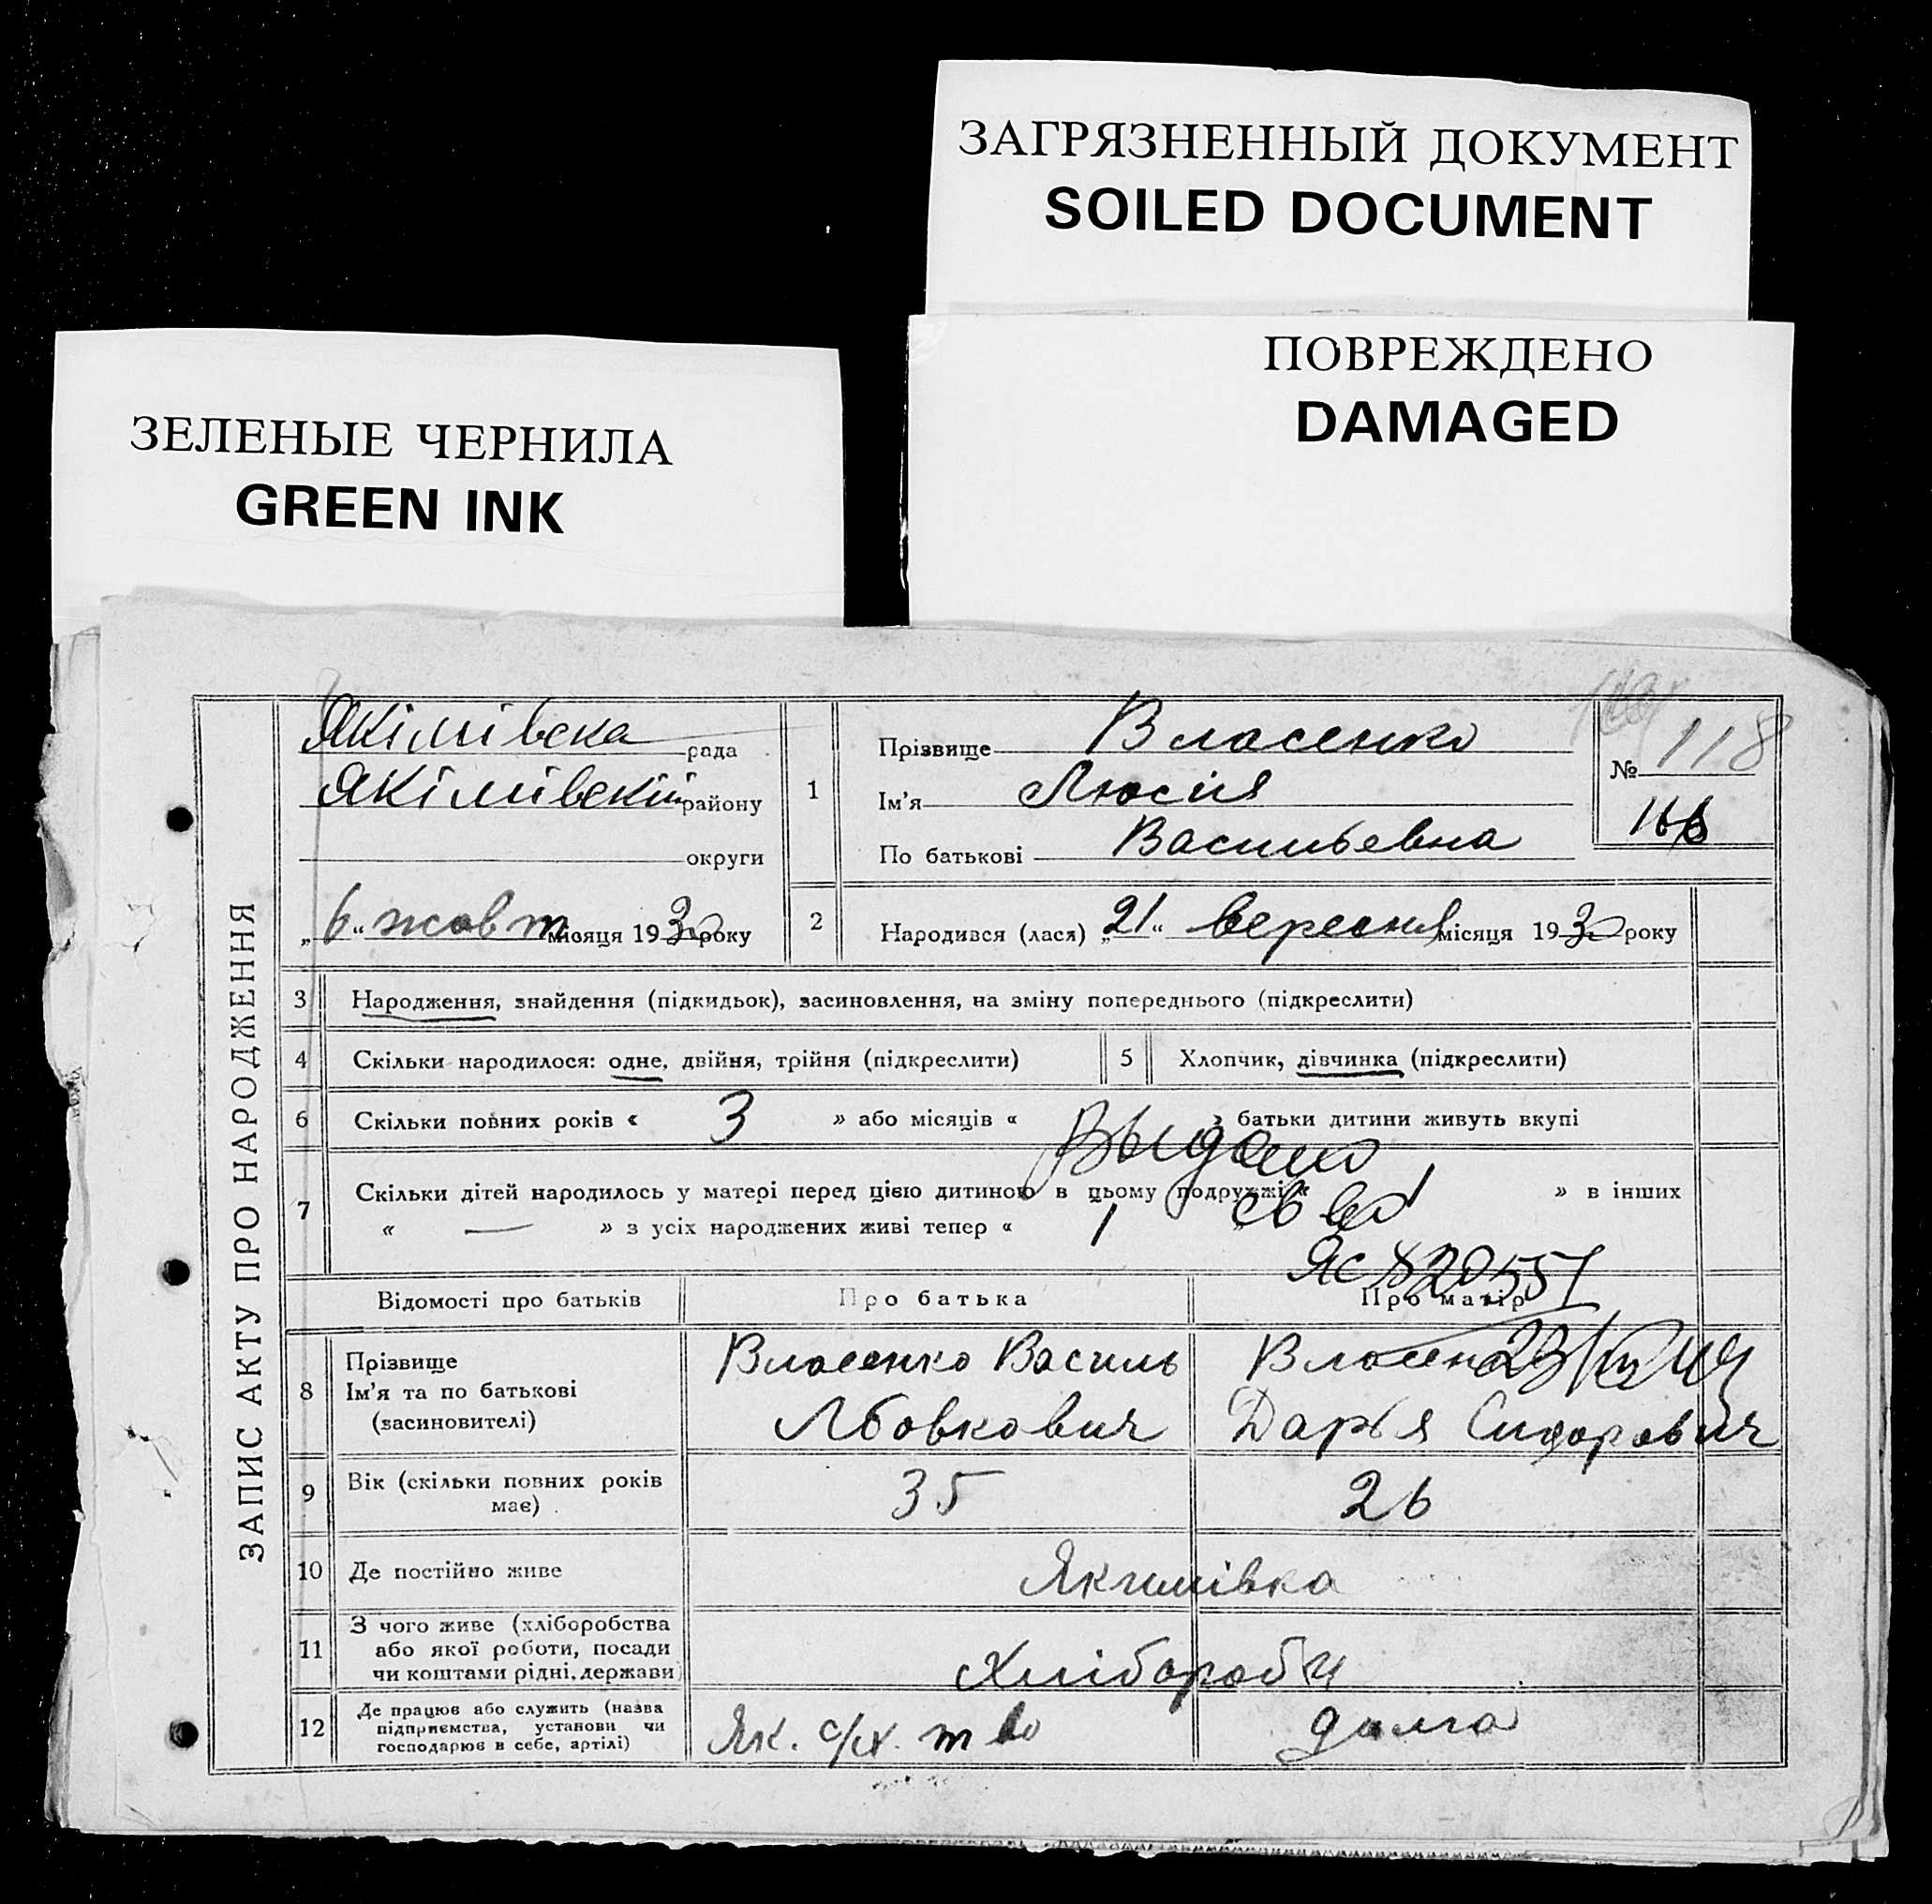 ЗАГРЯЗНЕННЫЙ ДОКУМЕНТ
SOILED DOCUMENT
ПОВРЕЖДЕНО
DAMAGED
ЗЕЛЕНЫЕ ЧЕРНИЛА
GREEN INK
ЗАПИС АКТУ ПРО НАРОДЖЕННЯ
Якімівска рада
Якімівский району
округи
„6“ жовт. місяця 1930 року
1
Прізвище Власенко
Ім'я Люсія
По батькові Васильевна
№ 118
166
2
Народився (лася) „21“ вересня місяця 1930 року
3 Народження, знайдення (підкидьок), засиновлення, на зміну попереднього (підкреслити)
4 Скільки народилося: одне, двійня, трійня (підкреслити)
5 Хлопчик, дівчинка (підкреслити)
6 Скільки повних років « 3 » або місяців « » батьки дитини живуть вкупі
Выдано
7 Скільки дітей народилось у матері перед цією дитиною в цьому подружжі « 1 » в інших
« — » з усіх народжених живі тепер « 1
св во
ЯС № 20551
Відомості про батьків Про батька Про матір
8 Прізвище
Ім'я та по батькові
(засиновителі)
Власенко Василь
Лбовкович
Дарья Сидорович
9 Вік (скільки повних років
має)
35
26
10 Де постійно живе Якимівка
11 З чого живе (хліборобства
або якої роботи, посади
чи коштами рідні, держави)
Хлібороби
12 Де працює або служить (назва
підприємства, установи чи
господарює в себе, артілі)
Як. с/х. т во
дома